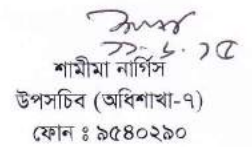 ১১.৮.১৫
শামীমা নার্গিস
উপসচিব (অধিশাখা-৭)
ফোন ঃ ৯৫৪০২৯০